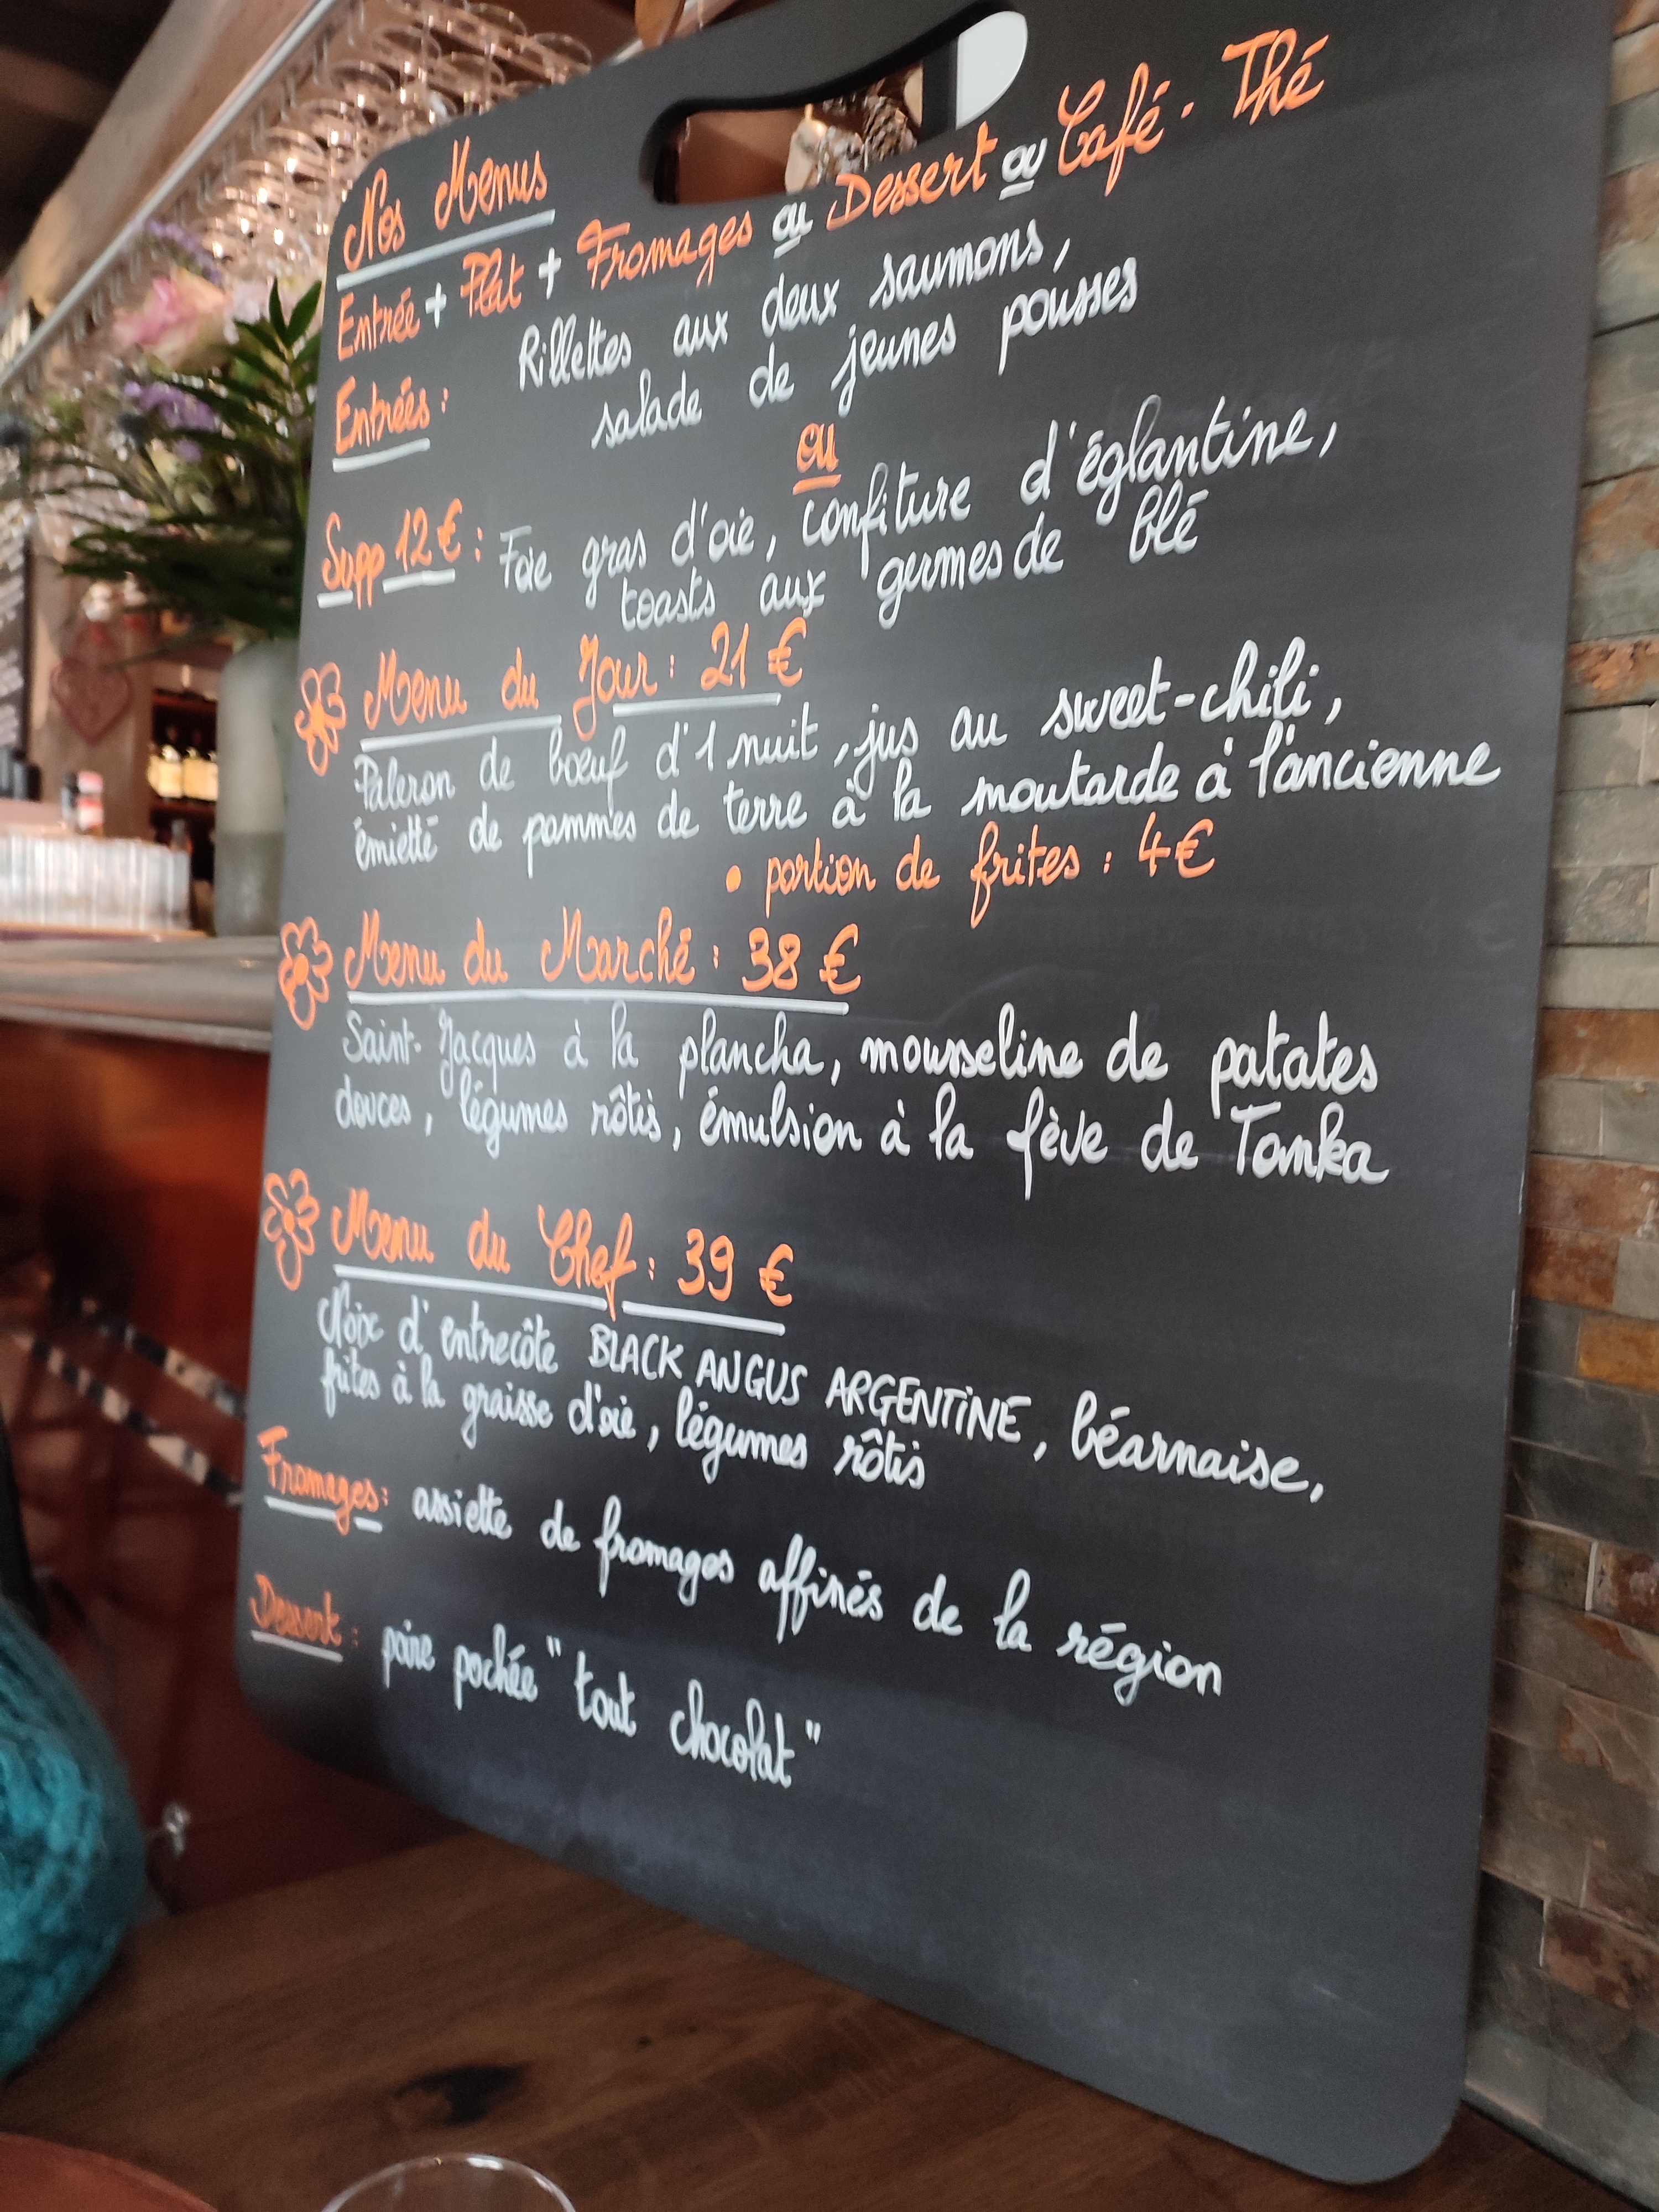 Nos Menus
Entrée + Plat + Fromages ou Dessert ou Café - Thé
Entrées : Rillettes aux deux saumons,
salade de jeunes pousses
ou
Supp 12 € : Foie gras d'oie, confiture d'églantine,
toasts aux germes de blé
Menu du Jour : 21 €
Paleron de boeuf d'1 nuit, jus au sweet-chili,
émietté de pommes de terre à la moutarde à l'ancienne
• portion de frites : 4 €
Menu du Marché : 38 €
Saint-Jacques à la plancha, mousseline de patates
douces, légumes rôtis, émulsion à la fève de Tonka
Menu du Chef : 39 €
Noix d'entrecôte BLACK ANGUS ARGENTINE, béarnaise,
frites à la graisse d'oie, légumes rôtis
Fromages : assiette de fromages affinés de la région
Dessert : poire pochée "tout chocolat"